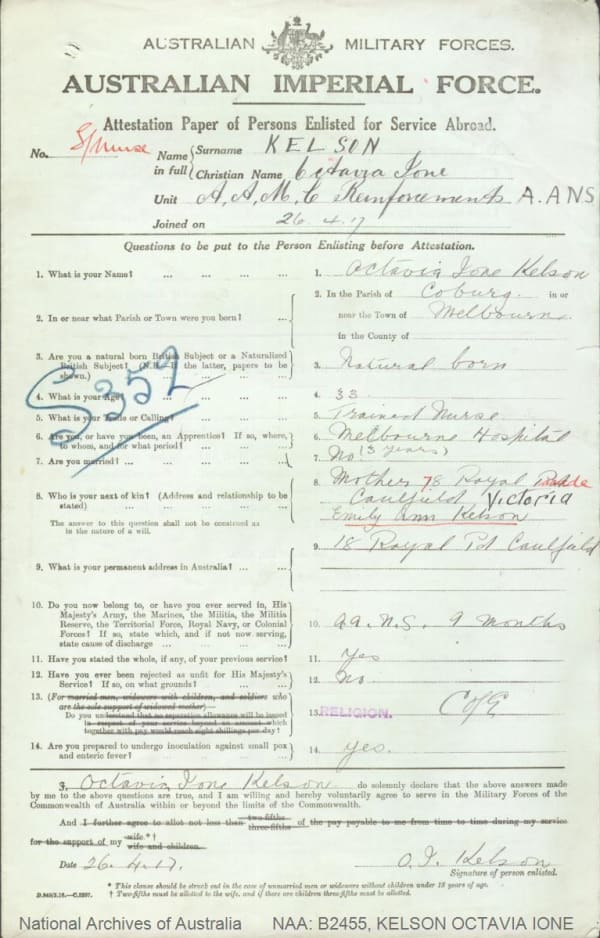 AUSTRALIAN MILITARY FORCES.
AUSTRALIAN IMPERIAL FORCE.
Attestation Paper of Persons Enlisted for Service Abroad.
No. S/Nurse Name in full Surname KELSON
Christian Name Octavia Ione
Unit A.A.M.C Reinforcements A.ANS
Joined on 26.4.17
Questions to be put to the Person Enlisting before Attestation.
1. What is your Name? ... ... ... ... 1. Octavia Ione Kelson
2. In or near what Parish or Town were you born? ... 2. In the Parish of Coburg. in or
near the Town of Melbourne
in the County of
3. Are you a natural born British Subject or a Naturalized
British Subject? (N.B.—If the latter, papers to be
shown.) 3. Natural born
S352
4. What is your Age? 4. 33
5. What is your Trade or Calling? 5. Trained Nurse
6. Are you, or have you been, an Apprentice? If so, where,
to whom, and for what period? 6. Melbourne Hospital
(3 years)
7. Are you married? ... 7. No
8. Who is your next of kin? (Address and relationship to be
stated) ... 8. Mother 78 Royal Pde
Caulfield Victoria
Emily Ann Kelson
The answer to this question shall not be construed as
in the nature of a will.
9. What is your permanent address in Australia? ... ... 9. 18 Royal Pd Caulfield
10. Do you now belong to, or have you ever served in, His
Majesty's Army, the Marines, the Militia, the Militia
Reserve, the Territorial Force, Royal Navy, or Colonial
Forces? If so, state which, and if not now serving,
state cause of discharge ... ... ... 10. A.A.N.S. 9 months
11. Have you stated the whole, if any, of your previous service? 11. Yes
12. Have you ever been rejected as unfit for His Majesty's
Service? If so, on what grounds? ... ... 12. No
13. (For married men, widowers with children, and soldiers who
are the sole support of widowed mother)
Do you understand that no separation allowance will be issued
in respect of your service beyond an amount which
together with pay would reach eight shillings per day? 13. RELIGION. C of E
14. Are you prepared to undergo inoculation against small pox
and enteric fever? 14. yes.
I, Octavia Ione Kelson do solemnly declare that the above answers made
by me to the above questions are true, and I am willing and hereby voluntarily agree to serve in the Military Forces of the
Commonwealth of Australia within or beyond the limits of the Commonwealth.
And I further agree to allot not less than two-fifths three-fifths of the pay payable to me from time to time during my service
for the support of my wife.*† wife and children.
Date 26.4.17. O. I. Kelson
Signature of person enlisted.
* This clause should be struck out in the case of unmarried men or widowers without children under 18 years of age.
† Two-fifths must be allotted to the wife, and if there are children three-fifths must be allotted.
National Archives of Australia NAA: B2455, KELSON OCTAVIA IONE